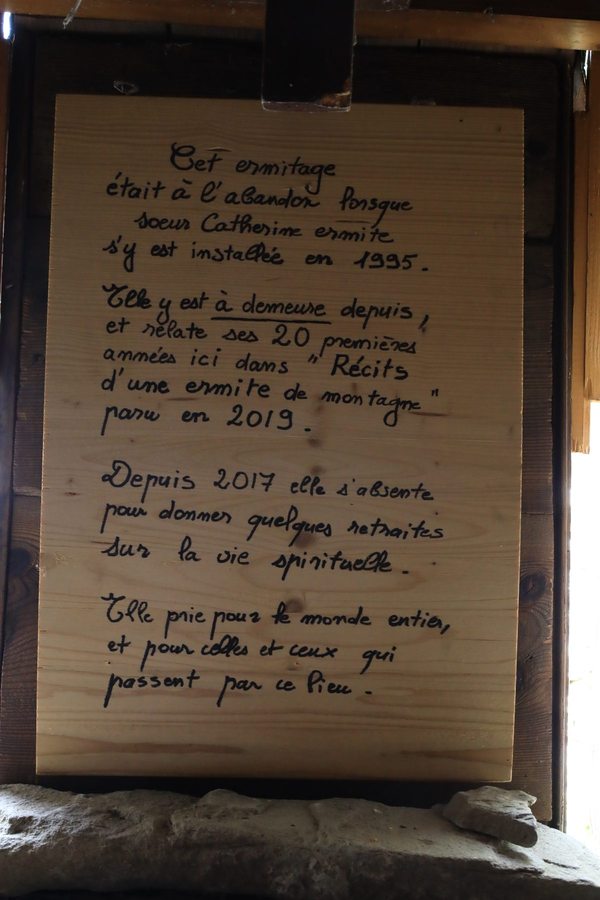 Cet ermitage
était à l'abandon lorsque
soeur Catherine ermite
s'y est installée en 1995.
Elle y est à demeure depuis,
et relate ses 20 premières
années ici dans "Récits
d'une ermite de montagne"
paru en 2019.
Depuis 2017 elle s'absente
pour donner quelques retraites
sur la vie spirituelle.
Elle prie pour le monde entier,
et pour celles et ceux qui
passent par ce lieu.